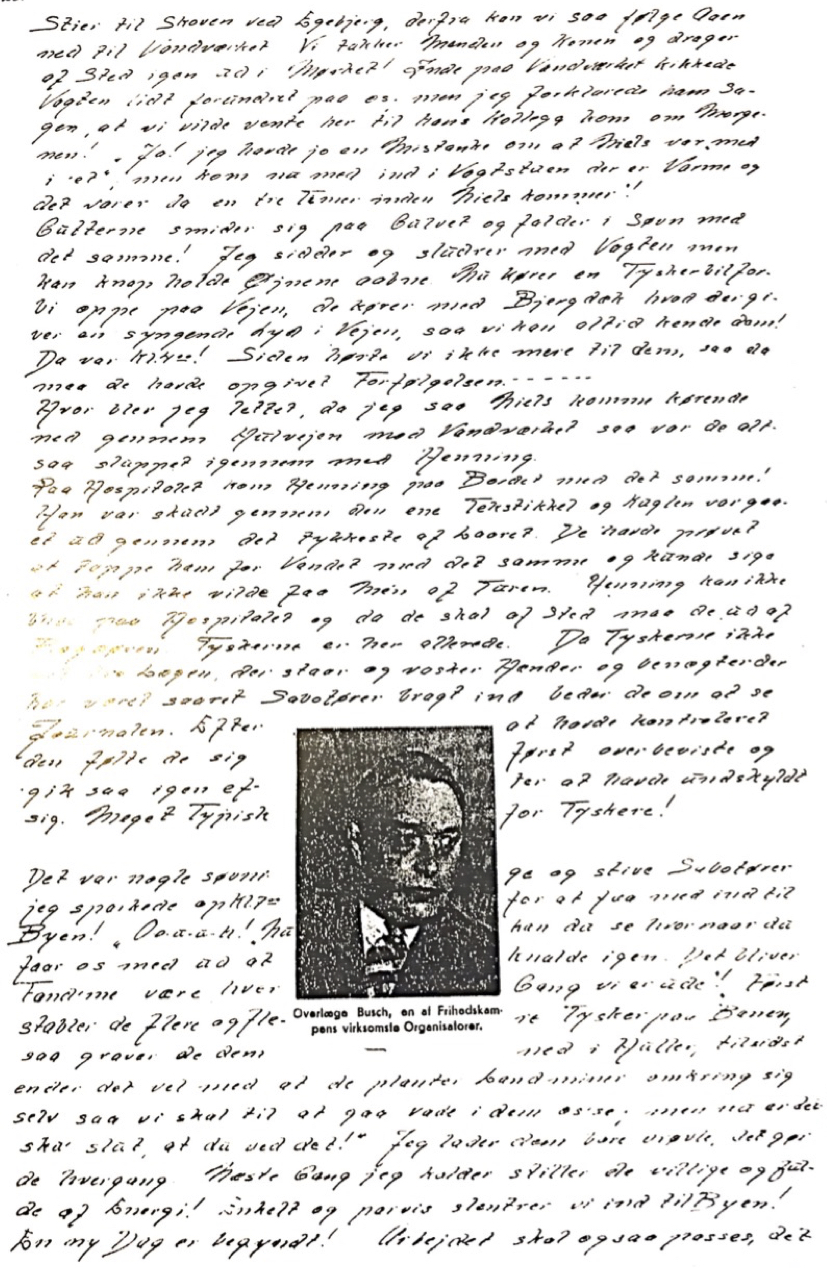 Stier til Skoven ved Egebjerg, derfra kan vi saa følge Aaen
ned til Vandværket. Vi takker Manden og Konen og drager
af Sted igen ud i Mørket! Inde paa Vandværket kikkede
Vagten lidt forundret paa os. men jeg forklarede ham Sa-
gen, at vi vilde vente her til hans Kollega kom om Morge-
nen! "Ja! jeg havde jo en Mistanke om at Niels var med
i "et", men kom nu med ind i Vagtstuen der er Varme og
det varer da en tre Timer inden Niels kommer"!
Gutterne smider sig paa Gulvet og falder i Søvn med
det samme! Jeg sidder og sludrer med Vagten men
kan knap holde Øjnene aabne. Nu kører en Tyskerbil for-
bi oppe paa Vejen, de kører med Bjergdæk hvad der gi-
ver en syngende Lyd i Vejen, saa vi kan altid kende dem!
Da var Kl. 4! Siden hørte vi ikke mere til dem, saa da
maa de havde opgivet Forfølgelsen. ------
Hvor blev jeg lettet, da jeg saa Niels komme kørende
ned gennem Hulvejen mod Vandværket saa var de alt-
saa sluppet igennem med Henning.
Paa Hospitalet kom Henning paa Bordet med det samme!
Han var skudt gennem den ene Testikkel og Kuglen var gaa-
et ud gennem det tykkeste af Laaret. De havde prøvet
at tappe ham for Vandet med det samme og kunde sige
at han ikke vilde faa Men af Turen. Henning kan ikke
blive paa Hospitalet og da de skal af Sted maa de ud af
Tyskerne er her allerede. Da Tyskerne ikke
Lægen, der staar og vasker Hænder og benægter der
har været saaret Sabotører bragt ind beder de om at se
Journalen. Efter at havde kontroleret
den følte de sig først overbeviste og
gik saa igen ef- ter at havde undskyldt
sig. Meget Typisk for Tyskere!
Det var nogle søvni- ge og stive Sabotører
jeg sparkede op Kl. 7 for at faa med ind til
Byen! "Oo-a-a-h! Nu kan du se hvornaar du
faar os med ud at knalde igen. Det bliver
Fandme være hver Gang vi er ude"! Først
stabler de flere og fle- re Tysker paa Banen,
saa graver de dem ned i Huller, tilsidst
Overlæge Busch, en af Frihedskam-
pens virksomste Organisatorer.
ender det vel med at de planter Landminer omkring sig
selv saa vi skal til at gaa vade i dem osse; men nu er det
ska' slut, at du ved det!" Jeg lader dem bare vrøvle, det gør
de hvergang. Næste Gang jeg kalder stiller de villige og ful-
de af Energi! Enkelt og parvis slentrer vi ind til Byen!
En ny Dag er begyndt! Arbejdet skal ogsaa passes, det